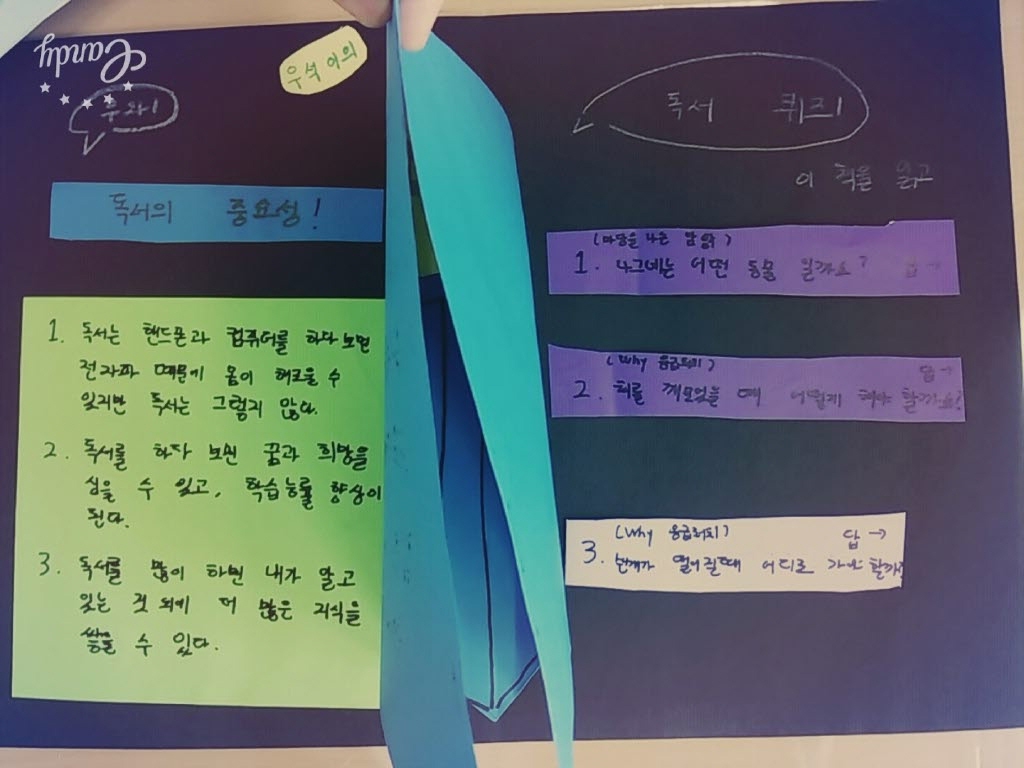 Candy
우석이의
독서의 중요성!
1. 독서는 핸드폰과 컴퓨터를 하다보면
전자파 때문에 몸이 해로울 수
있지만 독서는 그렇지 않다.
2. 독서를 하다 보면 꿈과 희망을
심을 수 있고, 학습능률 향상이
된다.
3. 독서를 많이 하면 내가 알고
있는 것 외에 더 많은 지식을
쌓을 수 있다.
독서 퀴즈!
이 책을 읽고
(마당을 나온 암탉)
1. 나그네는 어떤 동물 일까요? 답→
(Why 응급처치)
답→
2. 혀를 깨물었을 때 어떻게 해야 할까요?
(Why 응급처치) 답→
3. 번개가 떨어질때 어디로 가야 할까?